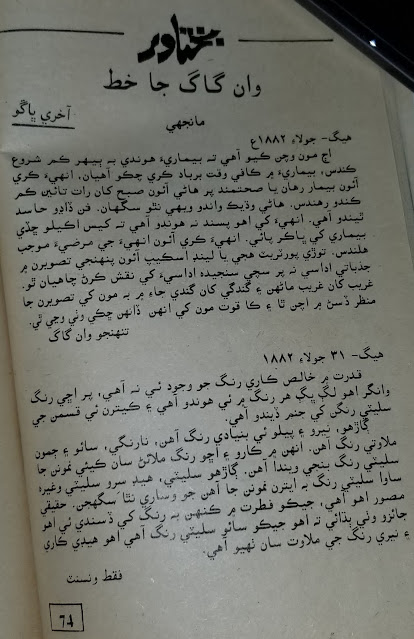 بختاور
وان گاگ جا خط
آخري ڀاڱو
مانجهي
هيگ- جولاءِ ١٨٨٢ع
اڄ مون وچن ڪيو آهي تہ بيماريءَ هوندي بہ ٻيهر ڪم شروع
ڪندس، بيماريءَ ۾ ڪافي وقت برباد ڪري چڪو آهيان، انهيءَ ڪري
آئون بيمار رهان يا صحتمند پر هاڻي آئون صبح کان رات تائين ڪم
ڪندو رهندس. هاڻي وڌيڪ واندو ويهي نٿو سگهان. فن ڏاڍو حاسد
ٿيندو آهي. انهيءَ کي اهو پسند نہ هوندو آهي تہ ڪيس اڪيلو ڇڏي
بيماري کي ڀاڪر پائي. انهيءَ ڪري آئون انهيءَ جي مرضيءَ موجب
هلندس. توڙي پورٽريٽ هجي يا لينڊ اسڪيپ آئون پنهنجي تصويرن ۾
جذباتي اداسي نہ پر سچي سنجيده اداسيءَ کي نقش ڪرڻ چاهيان ٿو.
غريب کان غريب ماڻهن ۽ گندگي کان گندي جاءِ ۾ بہ مون کي تصويرن جا
منظر ڏسڻ ۾ اچن ٿا ۽ ڪا قوت مون کي انهن ڏانهن ڇڪي وٺي وڃي ٿي.
تنهنجو وان گاگ
هيگ- ٣١ جولاءِ ١٨٨٢
قدرت ۾ خالص ڪاري رنگ جو وجود ئي نہ آهي، پر اڇي رنگ
وانگر اهو لڳ ڀڳ هر رنگ ۾ ئي هوندو آهي ۽ ڪيترن ئي قسمن جي
سليٽي رنگن کي جنم ڏيندو آهي.
ڳاڙهو، نيرو ۽ پيلو ئي بنيادي رنگ آهن، نارنگي، سائو ۽ ڄمون
ملاوتي رنگ آهن. انهن ۾ ڪارو ۽ اڇو رنگ ملائڻ سان ڪيئي نمونن جا
سليٽي رنگ بنجي ويندا آهن. ڳاڙهو سليٽي، هيڊ سرو سليٽي وغيره
ساوا سليٽي رنگ بہ ايترن نمونن جا آهن جو وساري نٿا سگهجن. حقيقي
مصور اهو آهي، جيڪو فطرت ۾ ڪنهن بہ رنگ کي ڏسندي ئي اهو
جائزو وٺي ٻڌائي تہ اهو جيڪو سائو سليٽي رنگ آهي اهو هيڊي ڪاري
۽ نيري رنگ جي ملاوت سان ٺهيو آهي.
فقط ونسنٽ